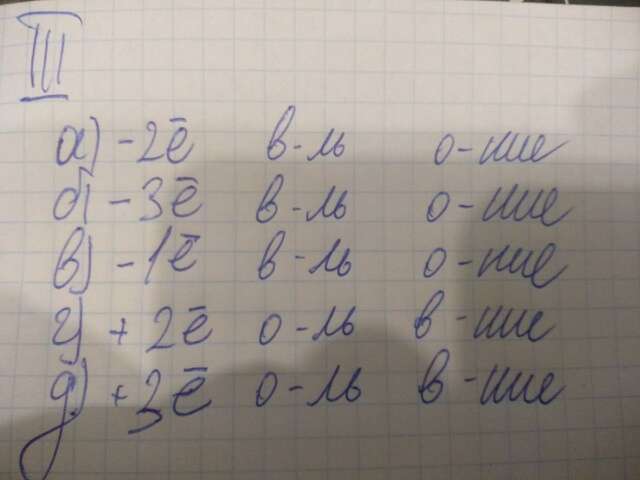 III
а) -2ē в-ль о-ние
б) -3ē в-ль о-ние
в) -1ē в-ль о-ние
г) +2ē о-ль в-ние
д) +3ē о-ль в-ние